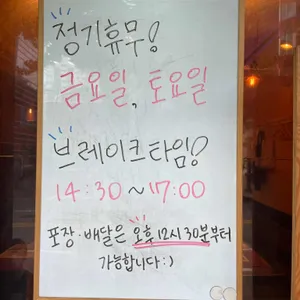 정기휴무!
금요일, 토요일
브레이크타임!
14:30~17:00
포장·배달은 오후 12시 30분부터
가능합니다:)